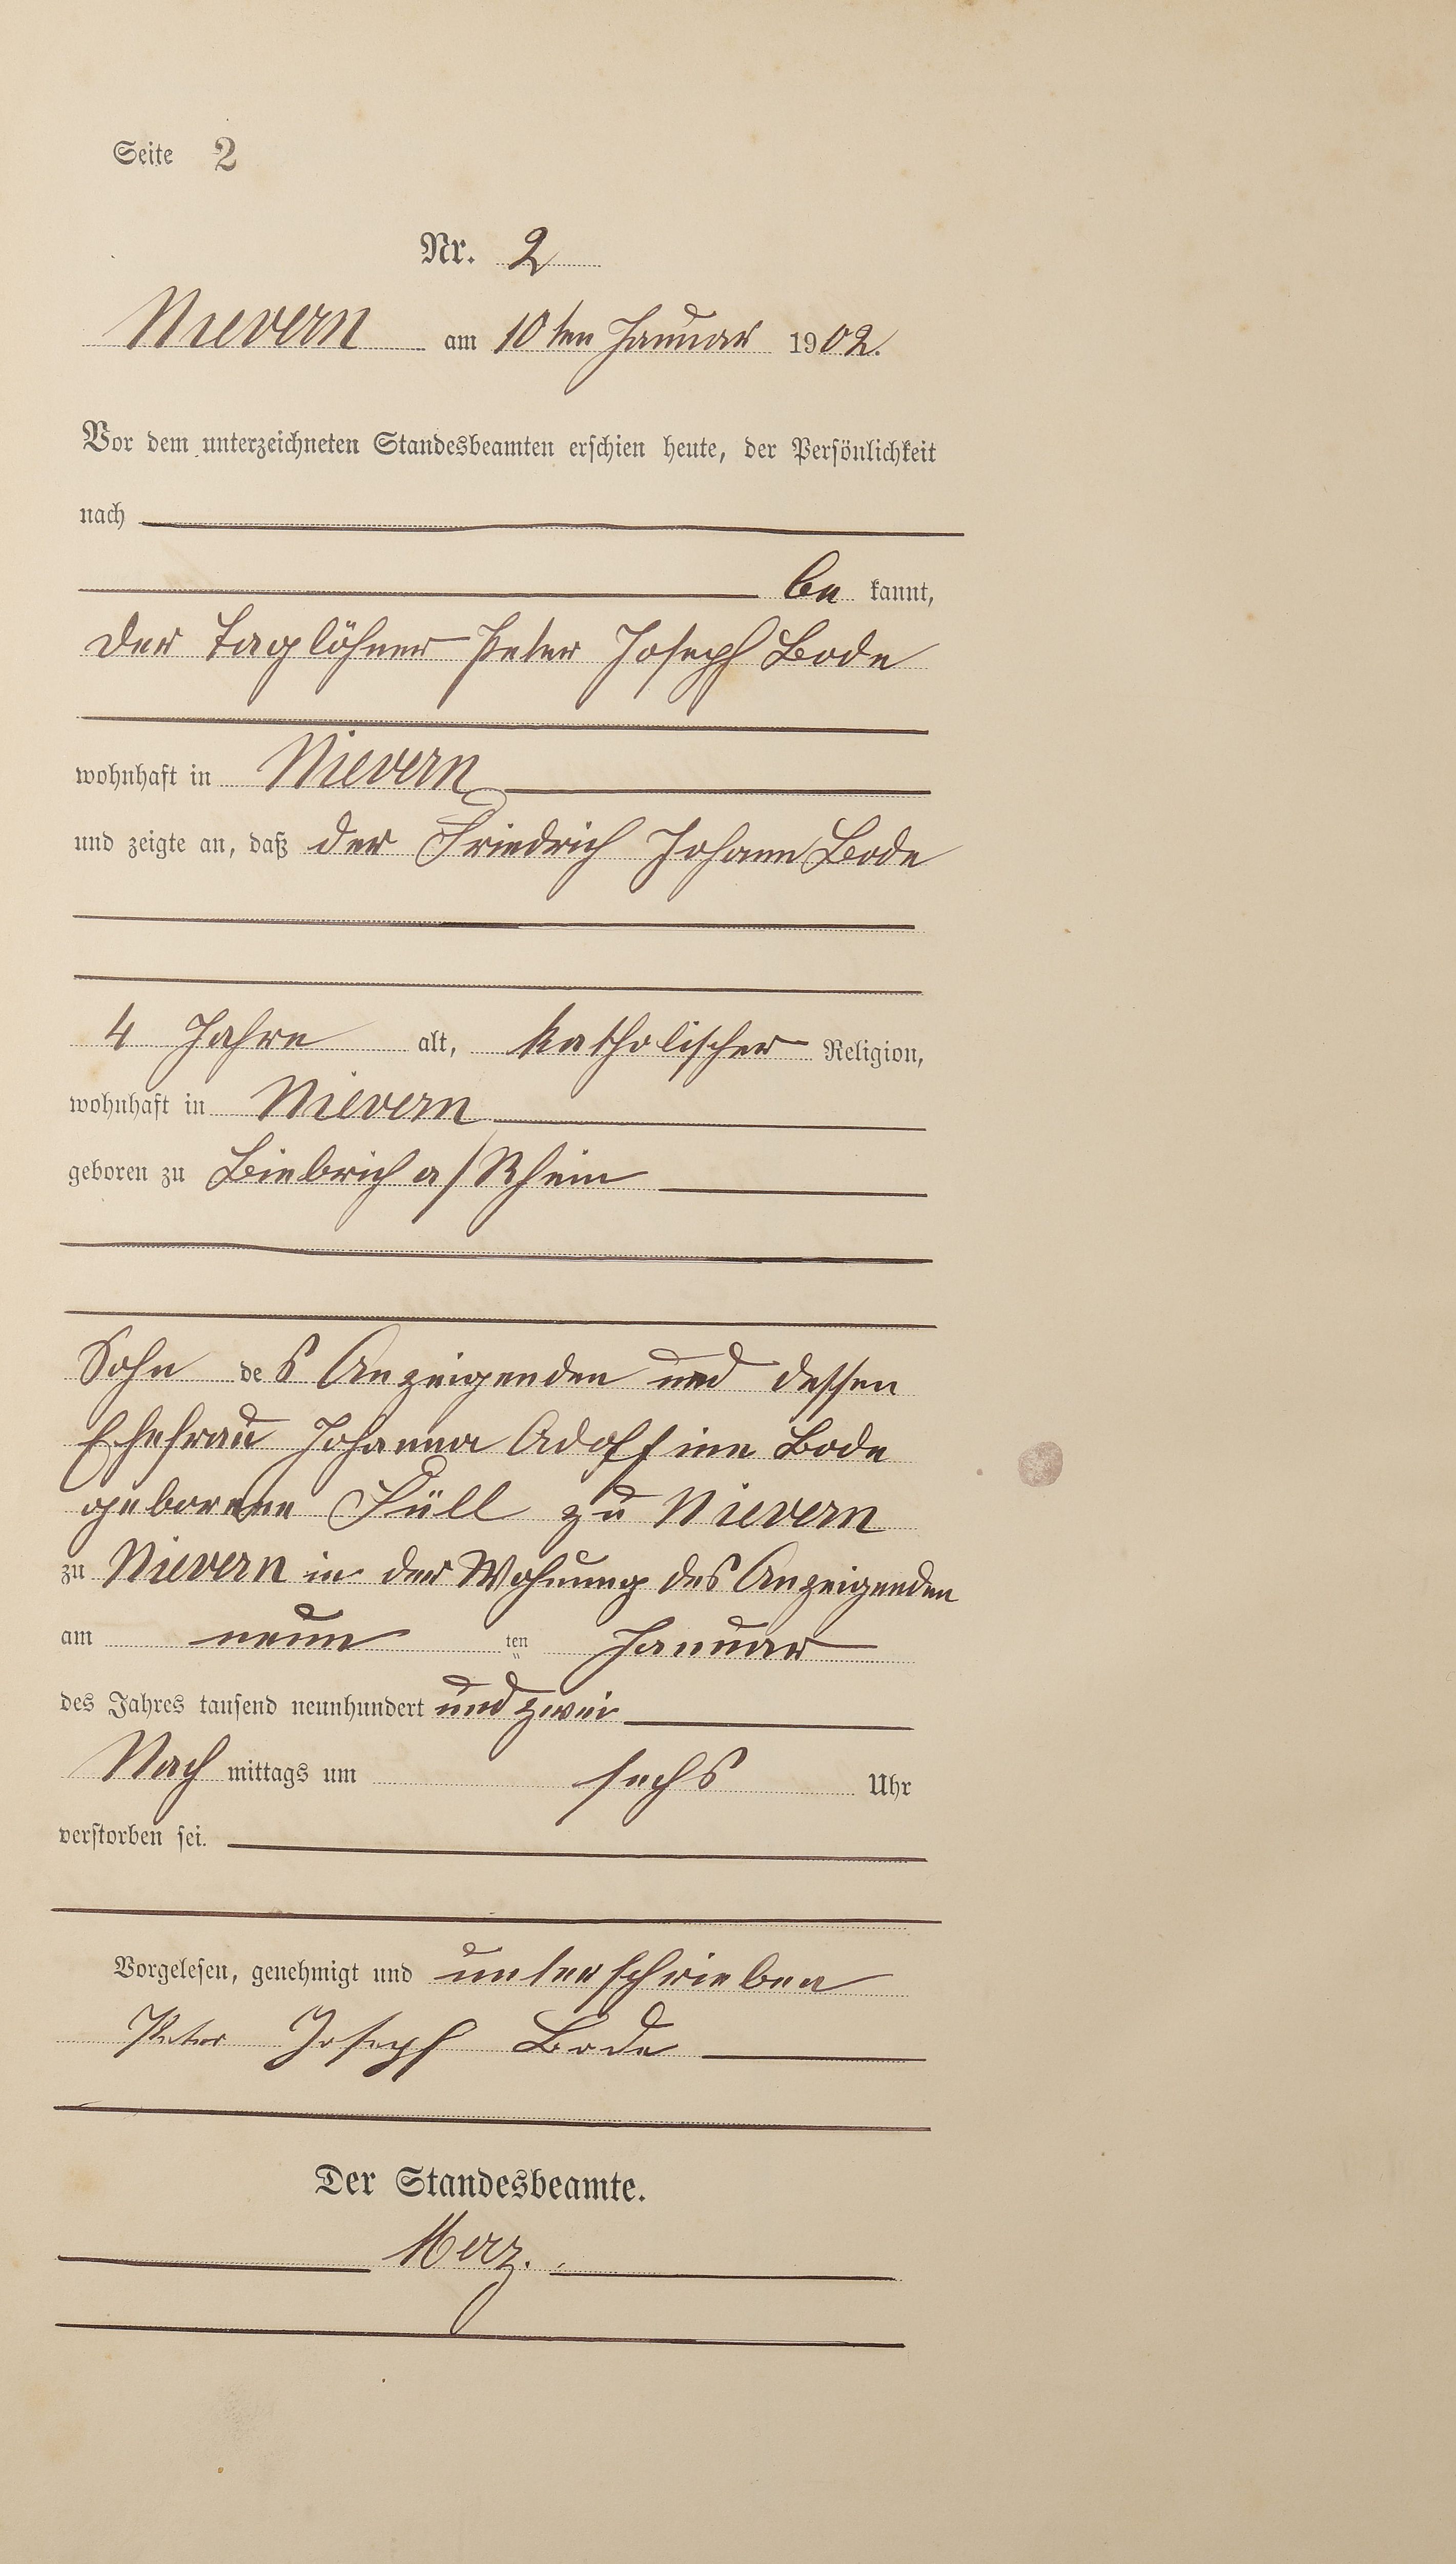 Seite 2
Nr. 2
Nievern am 10ten Januar 1902.
Vor dem unterzeichneten Standesbeamten erschien heute, der Persönlichkeit
nach
be kannt,
der Taglöhner Peter Joseph Bode
wohnhaft in Nievern
und zeigte an, daß der Friedrich Johann Bode
4 Jahre alt, katholischer Religion,
wohnhaft in Nievern
geboren zu Biebrich a/Rhein
Sohn des Anzeigenden und dessen
Ehefrau Johanna Adolfine Bode
geborene Füll zu Nievern
zu Nievern in der Wohnung des Anzeigenden
am neun ten Januar
des Jahres tausend neunhundert und zwei
Nach mittags um sechs Uhr
verstorben sei.
Vorgelesen, genehmigt und unterschrieben
Peter Joseph Bode
Der Standesbeamte.
Merz.